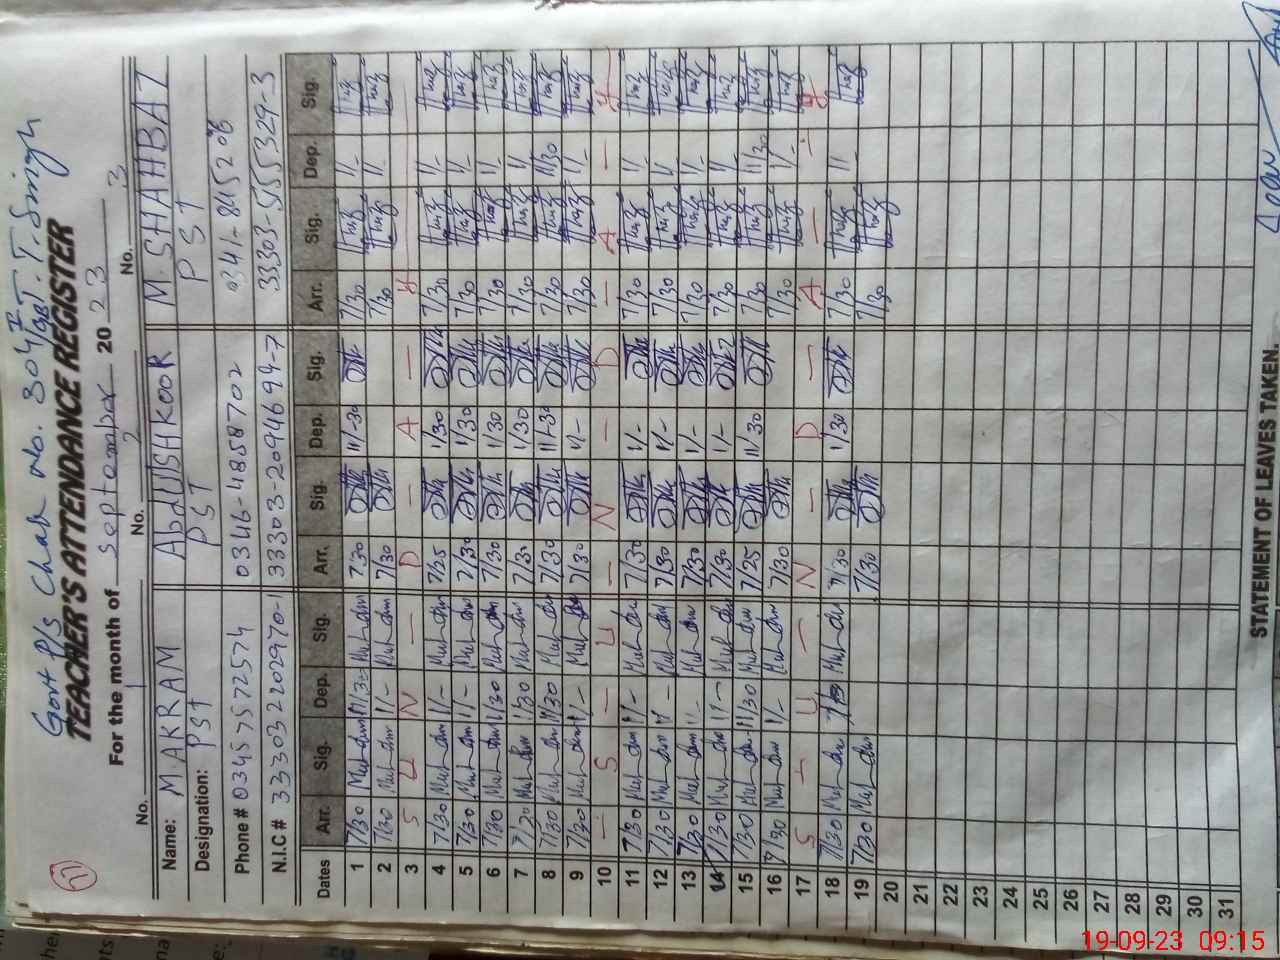 Govt P/S Chak No. 304
TEACHER'S ATTENDANCE REGISTER
For the month of September 2023
No. 1 No. 2 No. 3
Name: M. AKRAM AbdUSHKOOR M. SHAHBAZ
Designation: PST PST PST
Phone # 03457572574 0346-4858702 0341-8452
N.I.C # 33303-2094694-7 33303-5555329-3
Dates Arr. Sig. Dep. Sig. Arr. Sig. Dep. Sig. Arr. Sig. Dep. Sig.
1 7/30 11/30 7/30 11/-30 7/30 11/-
2 7/30 11/- 7/30 7/30 11/-
3 S U N D A Y
4 7/30 11/- 7/25 11/30 7/30 11/-
5 7/30 11/- 7/30 11/30 7/30 11/-
6 7/30 11/30 7/30 11/30 7/30 11/-
7 7/30 11/30 7/30 11/30 7/30 11/
8 7/30 11/30 7/30 11/-30 7/30 11/30
9 7/30 11/- 7/30 11/- 7/30 11/-
10 S U N D A Y
11 7/30 11/- 7/30 11/- 7/30 11/-
12 7/30 11/- 7/30 11/- 7/30 11/-
13 7/30 11/- 7/30 11/- 7/30 11/-
14 7/30 11/- 7/30 11/- 7/30 11/-
15 7/30 11/30 7/25 11/30 7/30 11/30
16 7/30 11/- 7/30 7/30 11/-
17 S U N D A Y
18 7/30 7/30 11/30 7/30 11/-
19 7/30 7/30 7/30
20
21
22
23
24
25
26
27
28
29
30
31
STATEMENT OF LEAVES TAKEN.
19-09-23 09:15